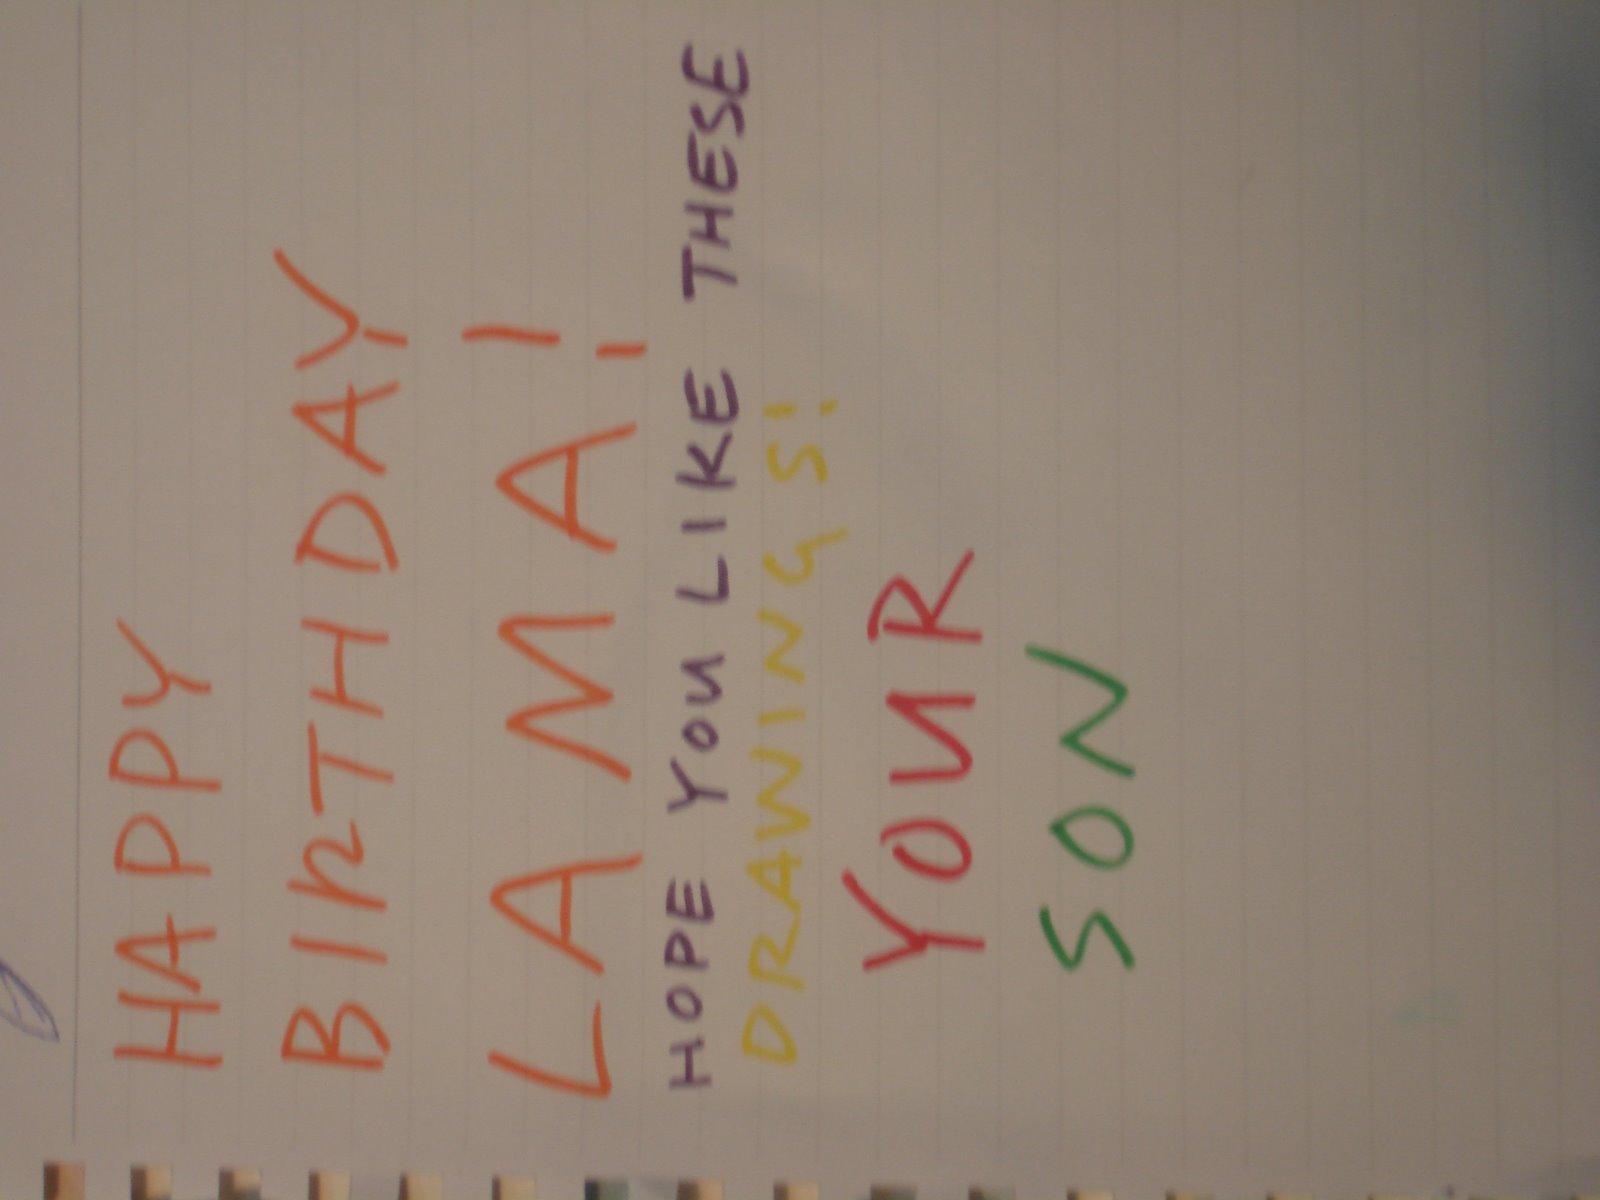 HAPPY
BIRTHDAY,
LAMA!
HOPE YOU LIKE THESE
DRAWINGS!
YOUR
SON